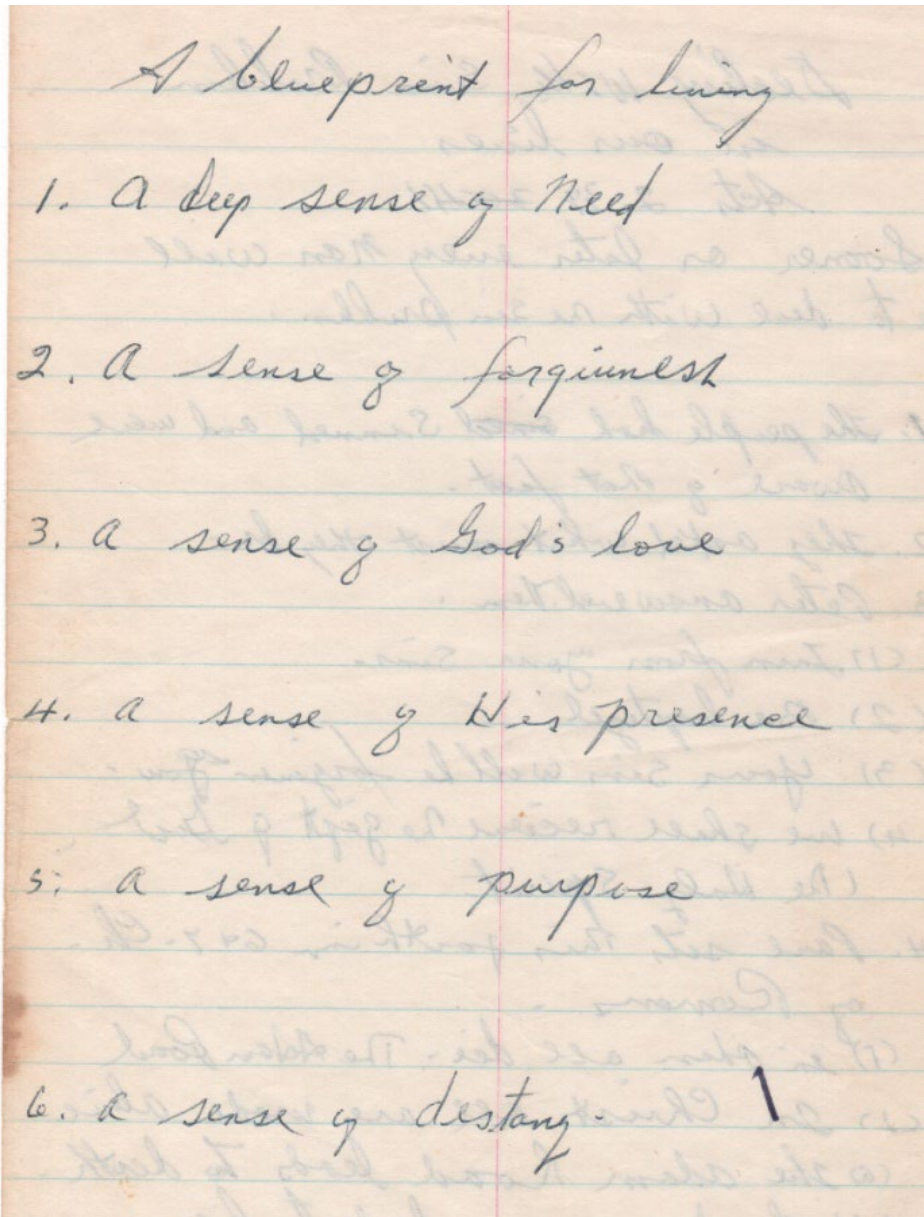 A blueprint for living
1. A deep sense of Need
2. A sense of forgivness
3. A sense of God's love
4. A sense of His presence
5. A sense of purpose
6. A sense of destany.
1